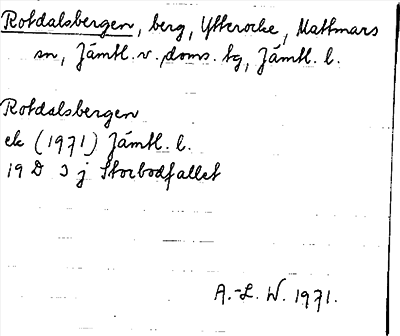 Rotdalsbergen, berg, Ytterocke, Mattmars
sn, Jämtl. v. doms. tg, Jämtl. l.
Rotdalsbergen
ek (1971) Jämtl. l.
19 D 3 j Storbodfallet
A.-L. W. 1971.